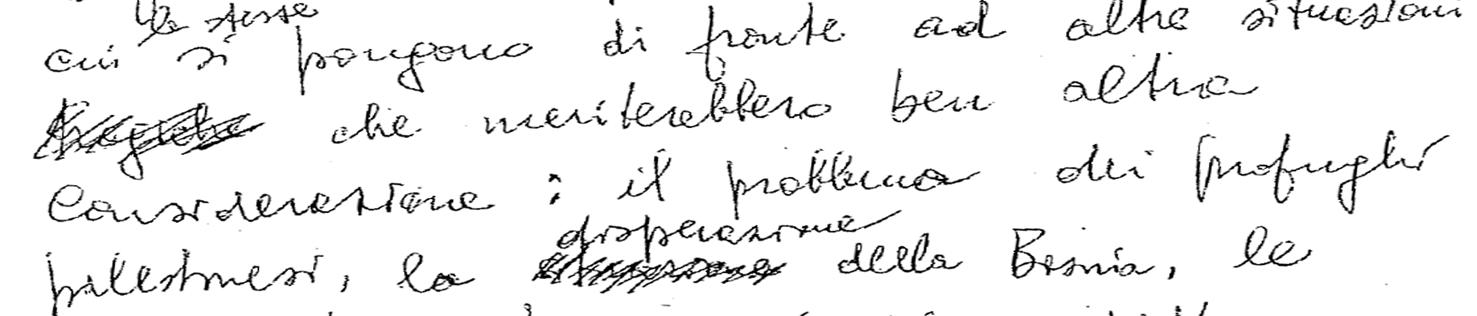 le stesse
cui si pongono di fronte ad altre situazioni
che meriterebbero ben altra
considerazione: il problema dei profughi
disperazione
palestinesi, la della Bosnia, le